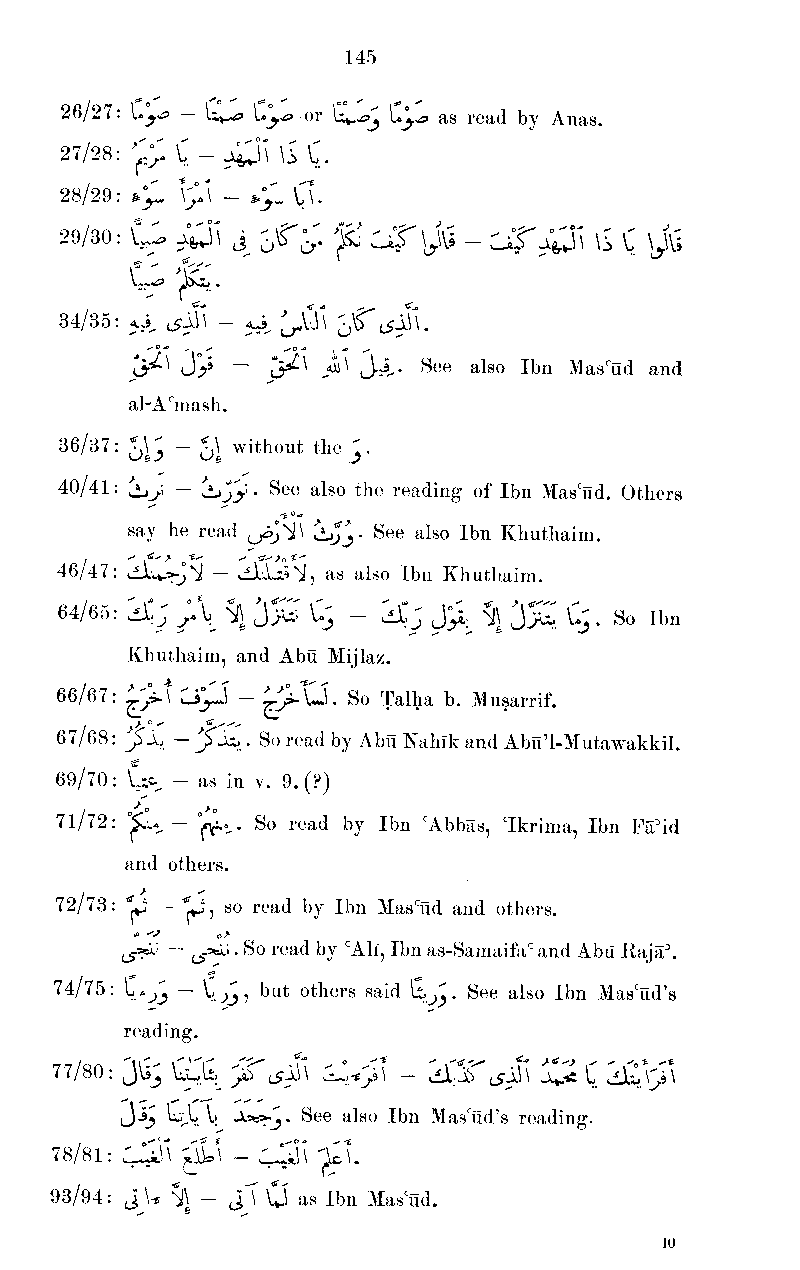 145
26/27: صَوْمًا – صَوْمًا صَمْتًا or صَوْمًا وَصَمْتًا as read by Anas.
27/28: يَا مَرْيَمُ – يَا ذَا ٱلْمَهْدِ.
28/29: ٱمْرَأَ سَوْءٍ – أَبَا سَوْءٍ.
29/30: قَالُوا كَيْفَ نُكَلِّمُ مَنْ كَانَ فِى ٱلْمَهْدِ صَبِيًّا – قَالُوا يَا ذَا ٱلْمَهْدِ كَيْفَ
يَتَكَلَّمُ صَبِيًّا.
34/35: ٱلَّذِى فِيهِ – ٱلَّذِى كَانَ ٱلنَّاسُ فِيهِ.
قَوْلَ ٱلْحَقِّ – قِيلَ ٱللهِ ٱلْحَقِّ. See also Ibn Masʿūd and
al-Aʿmash.
36/37: وَإِنَّ – إِنَّ without the وَ.
40/41: نَرِثُ – نُوَرِّثُ. See also the reading of Ibn Masʿūd. Others
say he read وُرِّثَ ٱلْأَرْضِ. See also Ibn Khuthaim.
46/47: لَأَرْجُمَنَّكَ – لَأَقْتُلَنَّكَ, as also Ibn Khuthaim.
64/65: وَمَا نَتَنَزَّلُ إِلَّا بِأَمْرِ رَبِّكَ – وَمَا يَتَنَزَّلُ إِلَّا بِقَوْلِ رَبِّكَ. So Ibn
Khuthaim, and Abū Mijlaz.
66/67: لَسَوْفَ أُخْرَجُ – لَسَأُخْرَجُ. So Ṭalḥa b. Muṣarrif.
67/68: يَذْكُرُ – يَتَذَكَّرُ. So read by Abū Nahīk and Abū’l-Mutawakkil.
69/70: عِتِيًّا – as in v. 9. (?)
71/72: مِنْكُمْ – مِنْهُمْ. So read by Ibn ʿAbbās, ʿIkrima, Ibn Fāʾid
and others.
72/73: ثُمَّ – ثَمَّ, so read by Ibn Masʿūd and others.
نُنَجِّى – نُنْحِى. So read by ʿAlī, Ibn as-Samaifaʿ and Abū Rajāʾ.
74/75: وَرِءْيًا – وَرِيًّا, but others said وَرِيئًا. See also Ibn Masʿūd’s
reading.
77/80: أَفَرَءَيْتَ ٱلَّذِى كَفَرَ بِـَٔايَـٰتِنَا وَقَالَ – أَفَرَأَيْتَكَ يَا مُحَمَّدُ ٱلَّذِى كَذَّبَكَ
وَجَحَدَ بِآيَاتِنَا وَقَالَ. See also Ibn Masʿūd’s reading.
78/81: أَطَّلَعَ ٱلْغَيْبَ – أَعَلِمَ ٱلْغَيْبَ.
93/94: إِلَّا ءَاتِى – لَمَّا آتِى as Ibn Masʿūd.
10